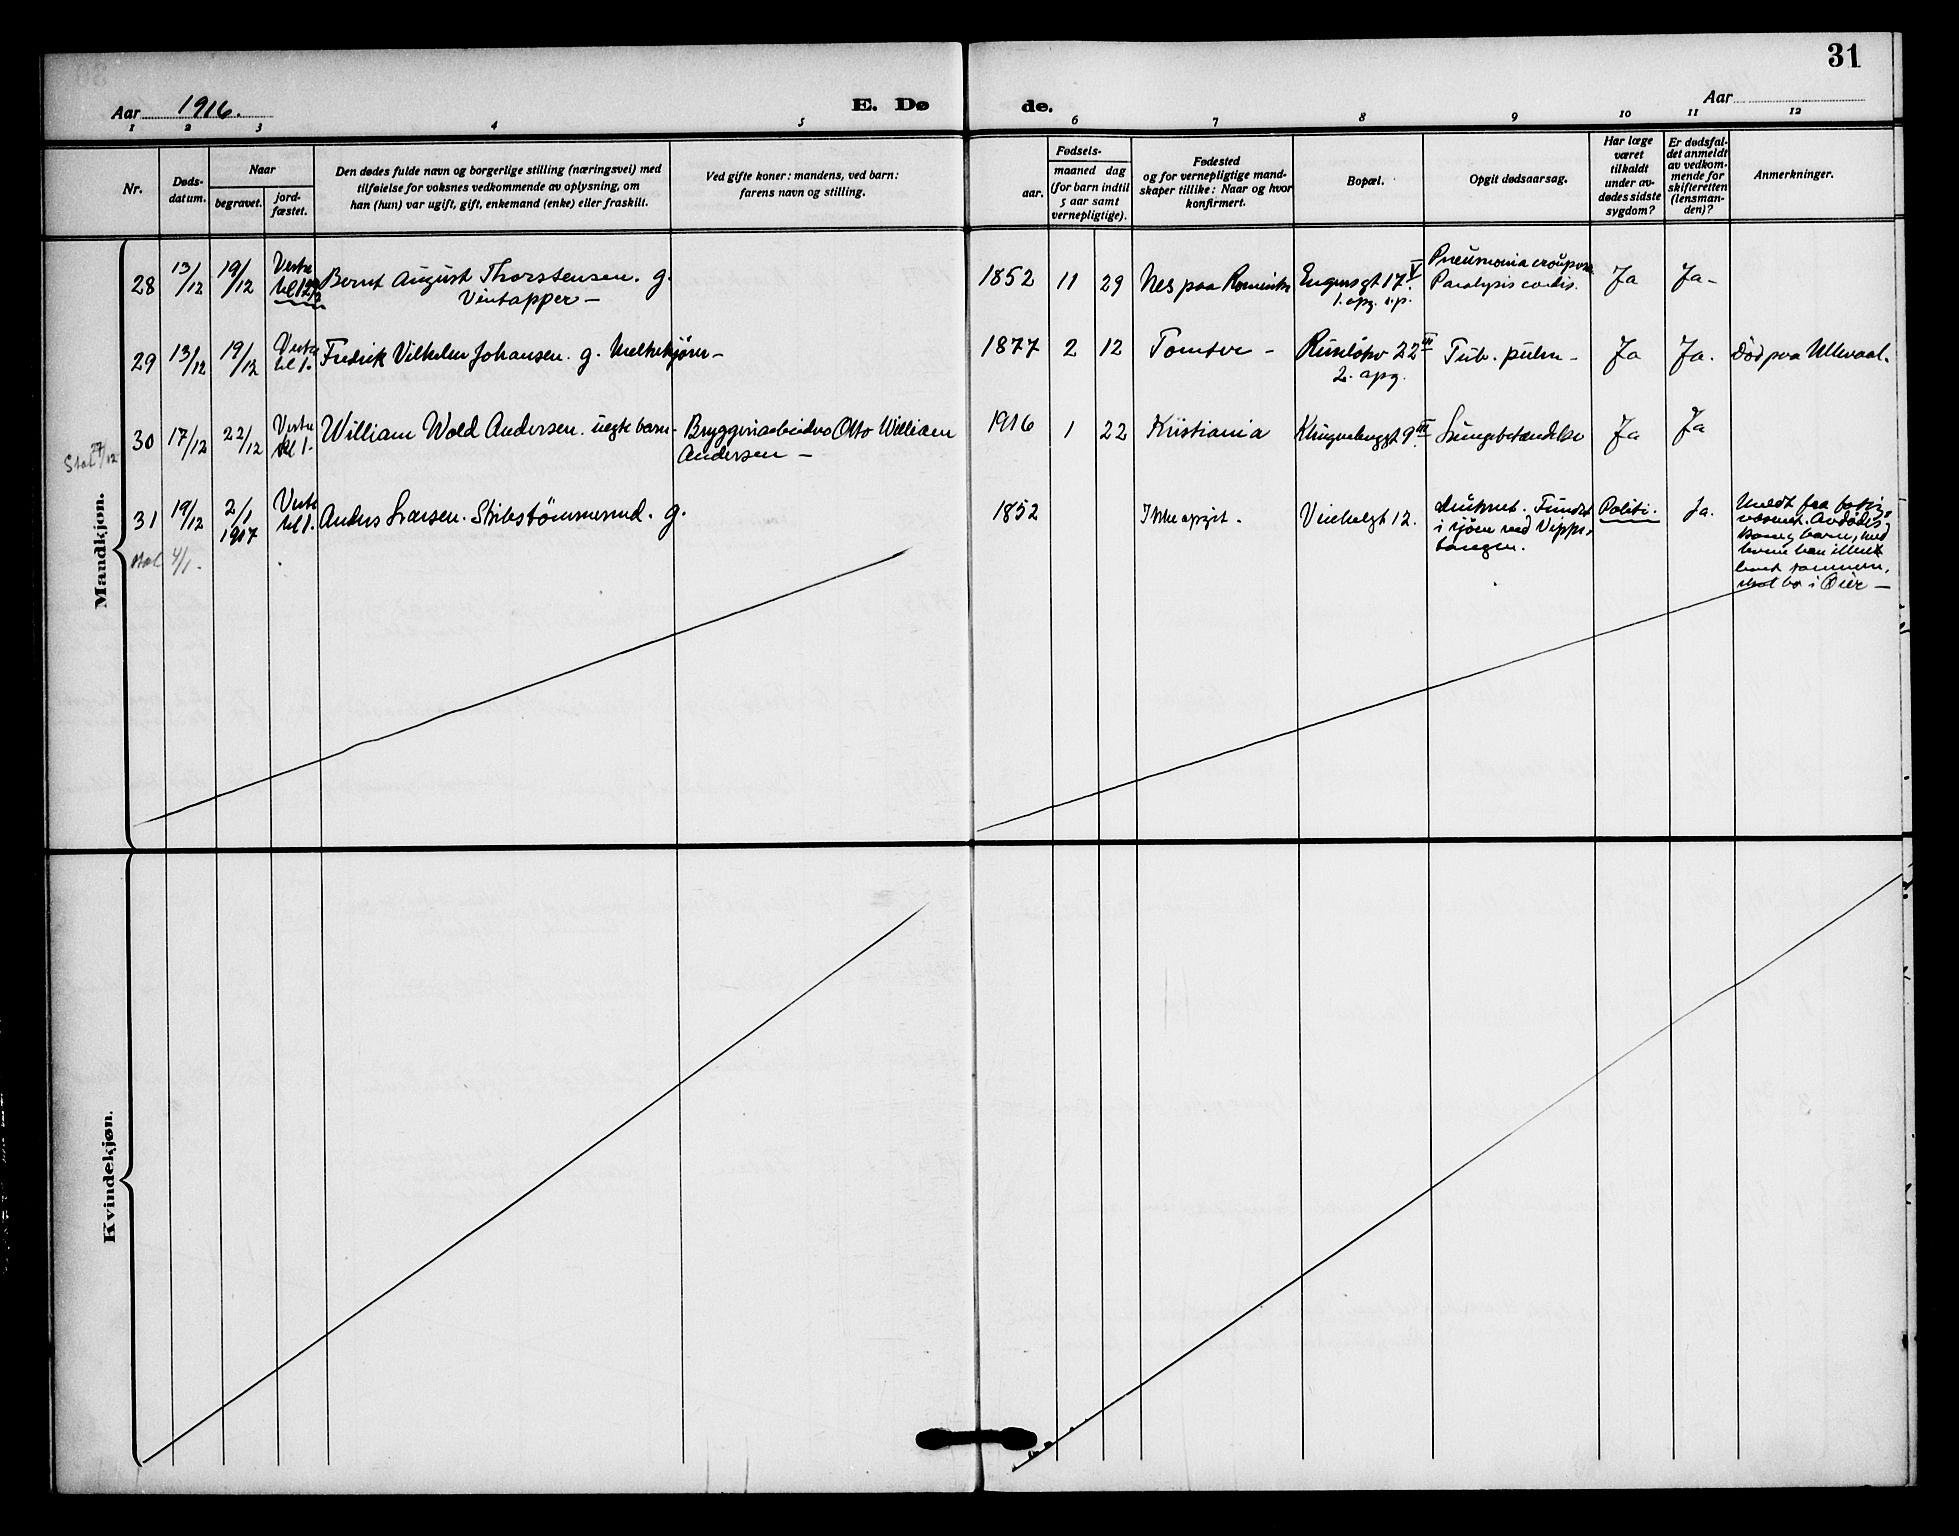 31
Aar 1916.
E. Dø de.
Aar
1 2 3 4 5 6 7 8 9 10 11 12
Nr.
Døds-
datum.
Naar
begravet.
jord-
fæstet.
Den dødes fulde navn og borgerlige stilling (næringsvei) med
tilføielse for voksnes vedkommende av oplysning, om
han (hun) var ugift, gift, enkemand (enke) eller fraskilt.
Ved gifte koner: mandens, ved barn:
farens navn og stilling.
Fødsels-
aar.
maaned dag
(for barn indtil
5 aar samt
vernepligtige).
Fødested
og for vernepligtige mand-
skaper tillike: Naar og hvor
konfirmert.
Bopæl.
Opgit dødsaarsag.
Har læge
været
tilkaldt
under av-
dødes sidste
sygdom?
Er dødsfal-
det anmeldt
av vedkom-
mende for
skifteretten
(lensman-
den)?
Anmerkninger.
Mandkjøn.
28 13/12 19/12 Vestre kl 12 1/2 Bernt August Thorstensen. g.
Vintapper —
1852 11 29 Nes paa Romerike Engensgt 17 V
1. opg. o.p.
Pneumonia crouposa
Paralysis cordis.
Ja Ja -
29 13/12 19/12 Vestre kl 1. Fredrik Vilhelm Johansen. g. Melkekjører -
1877 2 12 Tomter - Ruseløkv 22 III
2. opg.
Tub. pulm - Ja Ja. Død paa Ullevaal.
30 17/12 22/12 Vestre kl 1. William Wold Andersen. uegte barn - Bryggeriarbeider Otto William
Andersen —
1916 1 22 Kristiania 9 III Lungebetændelse Ja Ja
27/12
31 19/12 2/1 1917 Vestre kl 1. Anders Larsen. g.
1852 Ikke opgit. 12. druknet. Fundet
i sjøen ved Vippe-
tangen.
Politi. Ja. Meldt fra
væsenet. Avdødes
kone og barn, med
hvem han ikke
levet sammen,
skal bo i Øier —
4/1.
Kvindekjøn.